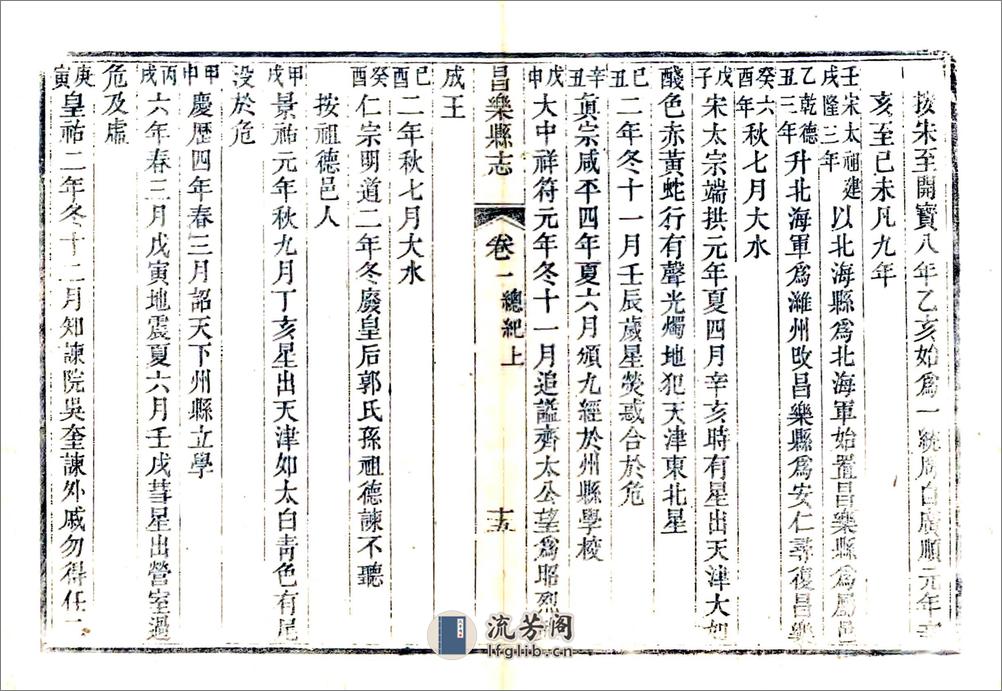 按宋至開寶八年乙亥始爲一統周自廣順元年辛
亥至己未凡九年
壬戌宋太祖建隆三年以北海縣爲北海軍始置昌樂縣爲屬邑
乙丑乾德三年升北海軍爲濰州改昌樂縣爲安仁尋復昌樂
癸酉六年秋七月大水
戊子宋太宗端拱元年夏四月辛亥時有星出天津大如
醆色赤黃蛇行有聲光燭地犯天津東北星
己丑二年冬十一月壬辰歲星熒惑合於危
辛丑眞宗咸平四年夏六月頒九經於州縣學校
戊申大中祥符元年冬十一月追謚齊太公望爲昭烈武
昌樂縣志
卷一
總紀上
十五
成王
己酉二年秋七月大水
癸酉仁宗明道二年冬廢皇后郭氏孫祖德諫不聽
按祖德邑人
甲戌景祐元年秋九月丁亥星出天津如太白青色有尾
没於危
甲申慶歷四年春三月詔天下州縣立學
丙戌六年春三月戊寅地震夏六月壬戌彗星出營室過
危及虛
庚寅皇祐二年冬十二月知諫院吳奎諫外戚勿得任二
流芳阁
lfglib.cn